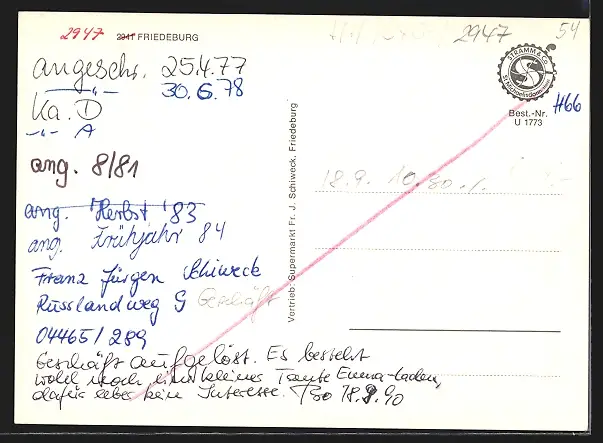 2947 2941 FRIEDEBURG
angeschr. 25.4.77
-"- 30.6.78
Ka. D
-"- A
ang. 8/81
ang. Herbst '83
ang. Frühjahr 84
Franz Jürgen Schiweck
Russlandweg 9 Geschäft
04465/289
Geschäft aufgelöst. Es besteht
wohl noch ein kleiner Tante Emma-Laden,
dafür aber kein Interesse. 18.9.90
Vertrieb: Supermarkt Fr. J. Schiweck, Friedeburg
2947
54
STRAMM & Co.
St. Michaelisdonn
Best.-Nr.
U 1773
H66
18.9. 10.80